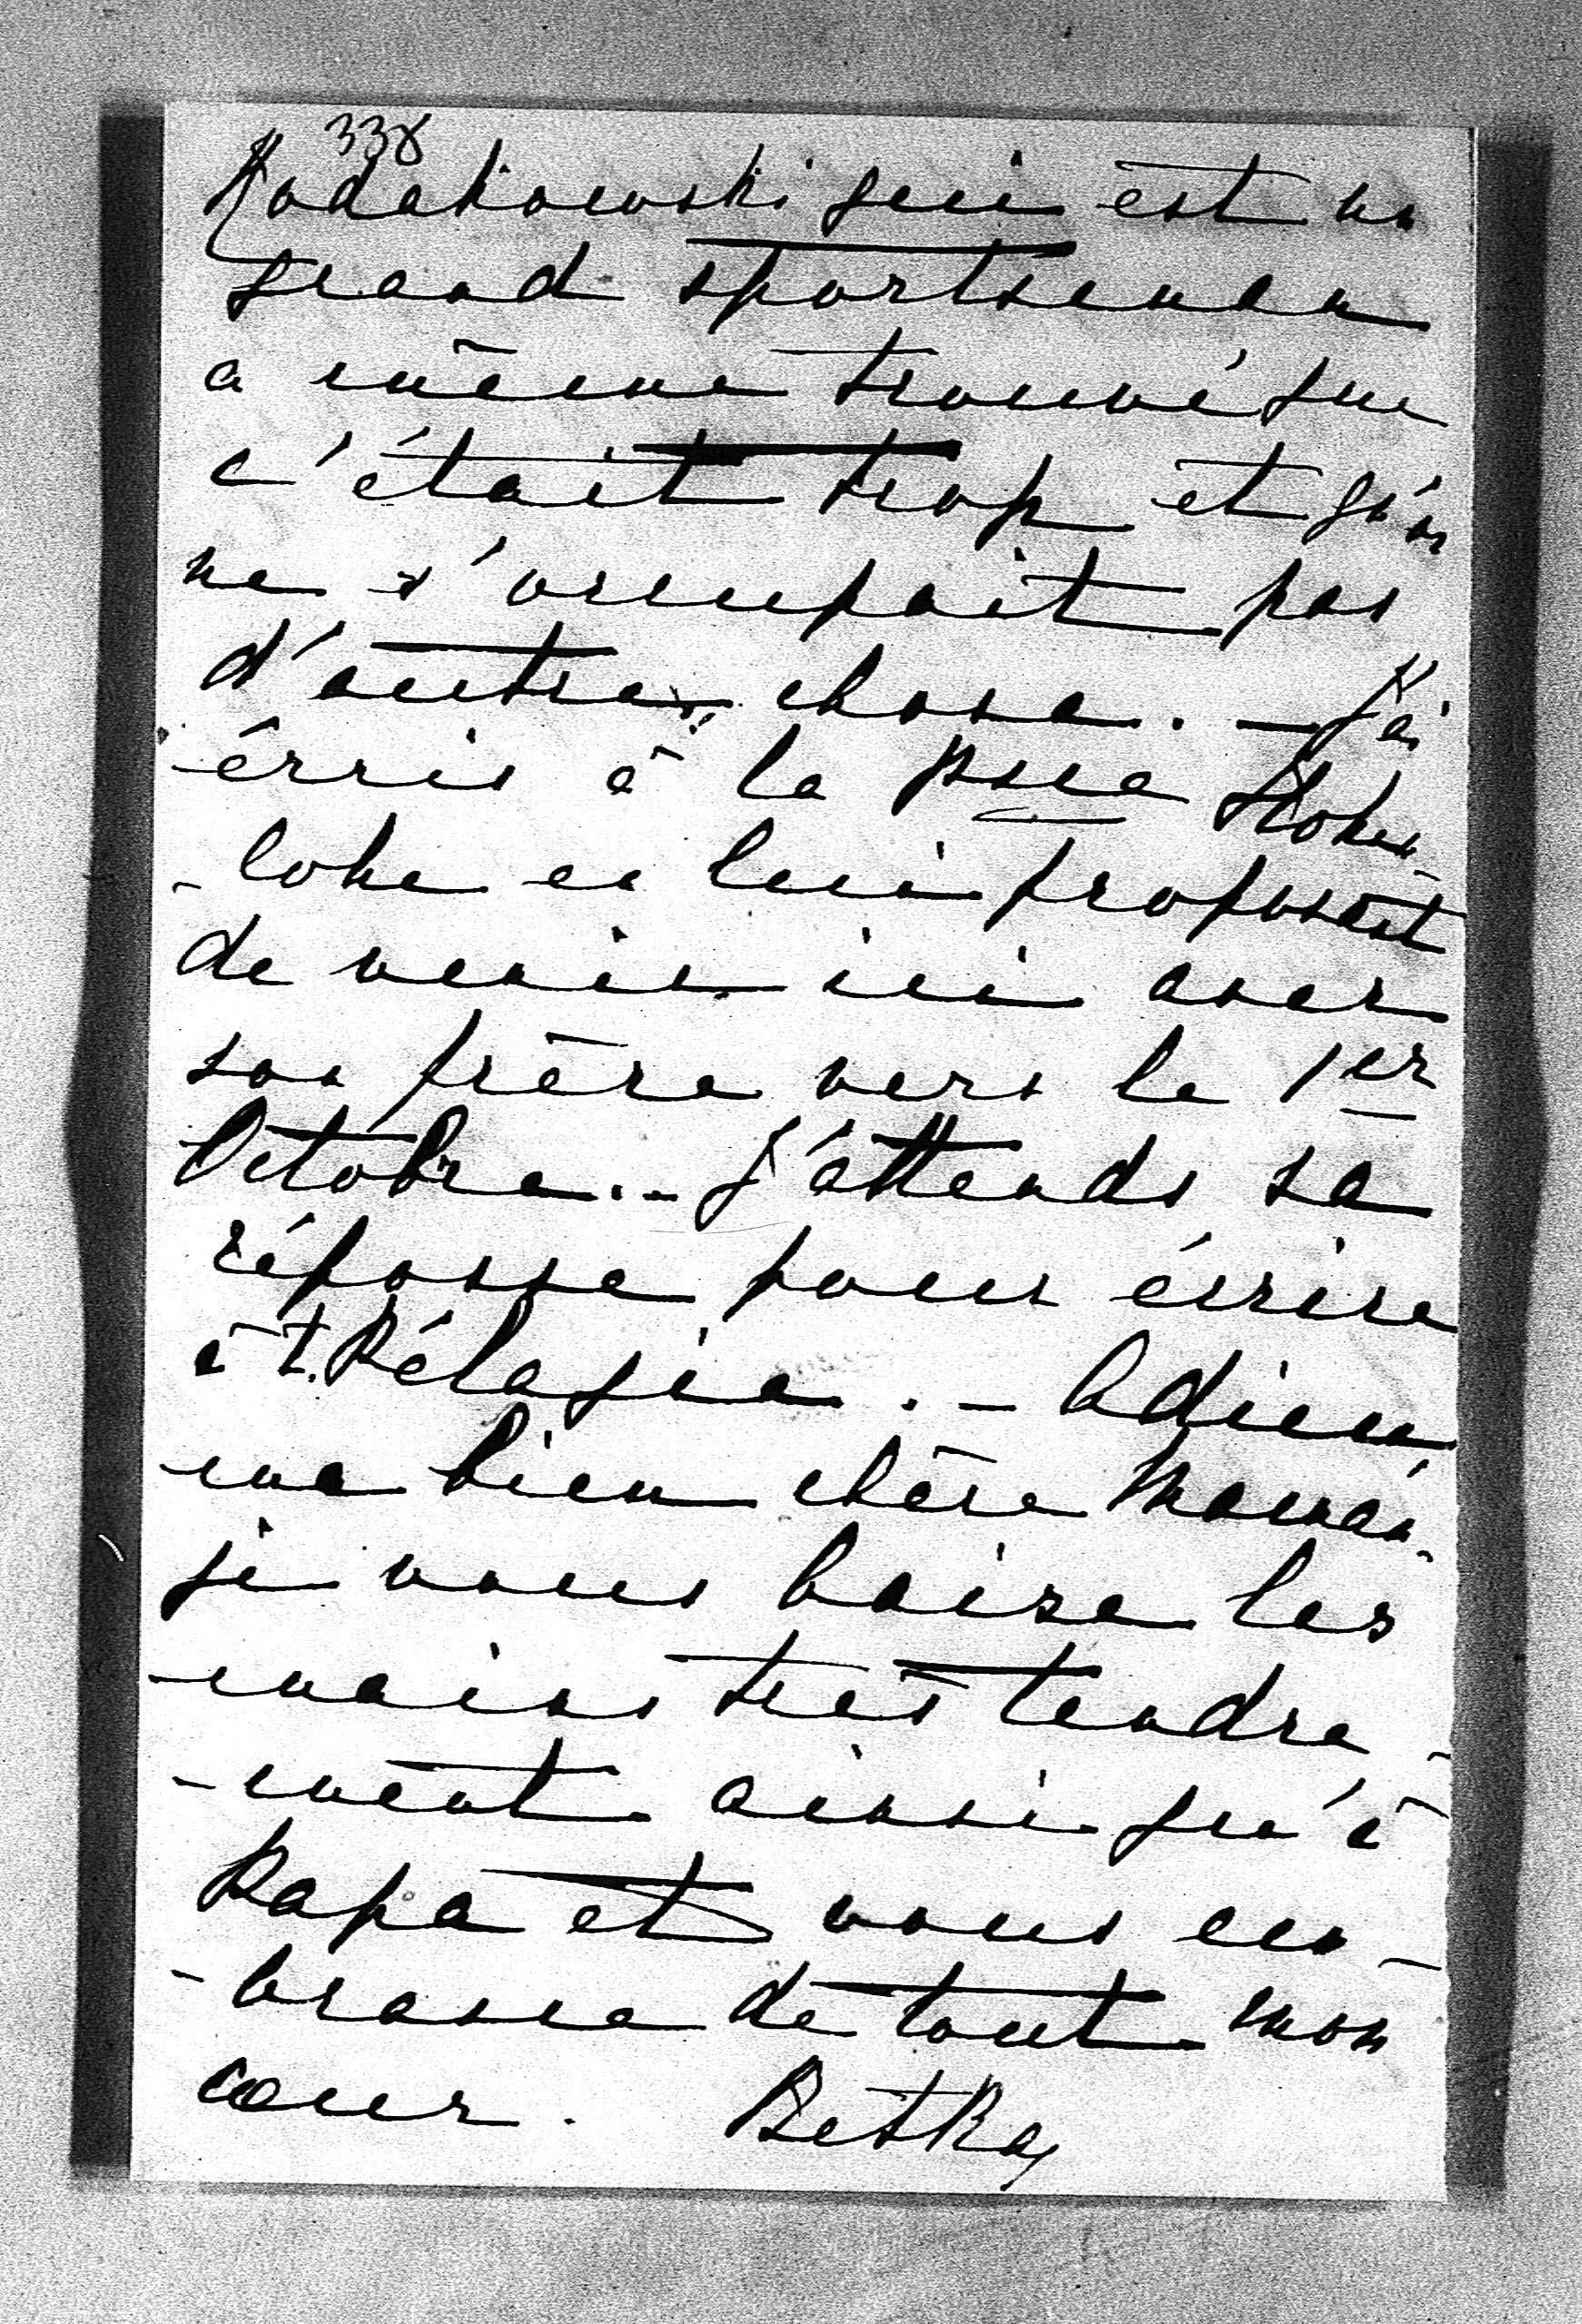 338
Rodakowski qui est un
grand sportsman
a même trouvé que
c'était trop et qu'on
ne s'occupait pas
d'autre chose. – J'ai
écris à la Psse Hohen
-lohe en lui proposant
de venir ici avec
son frère vers le 1er
Octobre. – J'attends sa
réponse pour écrire
à t. Pélagie. – Adieu
ma bien chère Maman
je vous baise les
mains très tendre-
-ment ainsi qu'à
Papa et vous em-
-brasse de tout mon
cœur. Betka